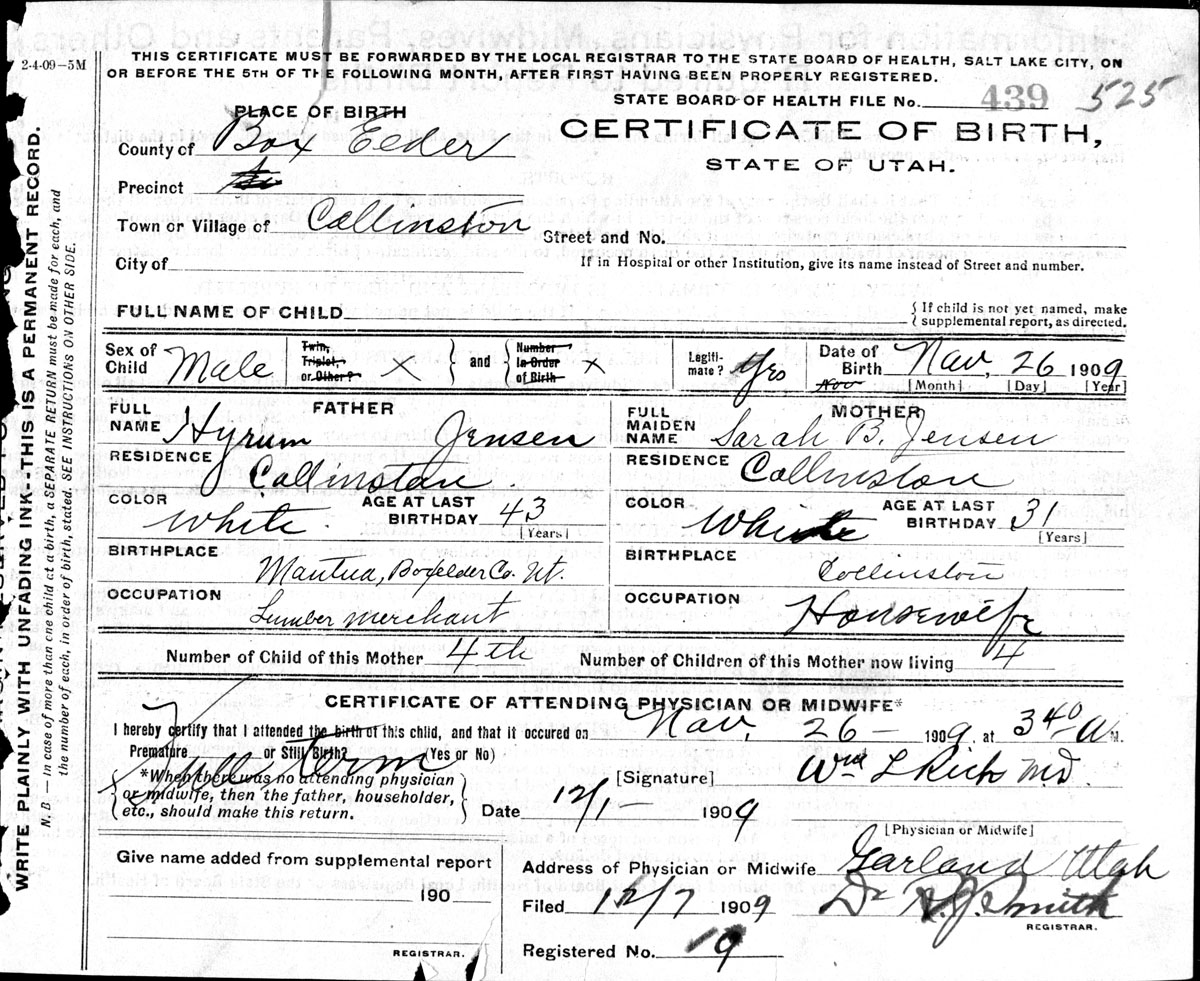 2-4-09-5M
THIS CERTIFICATE MUST BE FORWARDED BY THE LOCAL REGISTRAR TO THE STATE BOARD OF HEALTH, SALT LAKE CITY, ON
OR BEFORE THE 5TH OF THE FOLLOWING MONTH, AFTER FIRST HAVING BEEN PROPERLY REGISTERED.
STATE BOARD OF HEALTH FILE No. 439 525
PLACE OF BIRTH
CERTIFICATE OF BIRTH,
STATE OF UTAH.
County of Box Elder
Precinct
Town or Village of Collinston
Street and No.
City of
If in Hospital or other Institution, give its name instead of Street and number.
FULL NAME OF CHILD
{ If child is not yet named, make
supplemental report, as directed.
Sex of Child Male
Twin, Triplet, or Other? X } and { Number In Order of Birth X
Legiti-mate? Yes
Date of Birth Nov. 26 1909
Nov [Month] [Day] [Year]
FATHER
FULL NAME Hyrum Jensen
MOTHER
FULL MAIDEN NAME Sarah B. Jensen
RESIDENCE Collinston.
RESIDENCE Collinston
COLOR White
AGE AT LAST BIRTHDAY 43 [Years]
COLOR White
AGE AT LAST BIRTHDAY 31 [Years]
BIRTHPLACE Mantua, Boxelder Co. Ut.
BIRTHPLACE Collinston
OCCUPATION Lumber merchant
OCCUPATION Housewife
Number of Child of this Mother 4th
Number of Children of this Mother now living 4
CERTIFICATE OF ATTENDING PHYSICIAN OR MIDWIFE*
I hereby certify that I attended the birth of this child, and that it occured on Nov. 26 - 1909 at 3 40 A M.
Premature or Still Birth? (Yes or No)
*When there was no attending physician
or midwife, then the father, householder,
etc., should make this return.
[Signature] Wm L Rich MD.
Date 12/1- 1909
[Physician or Midwife]
Give name added from supplemental report
190
REGISTRAR.
Address of Physician or Midwife Garland Utah
Filed 12/7 1909 Dr. Smith
REGISTRAR.
Registered No. 9
WRITE PLAINLY WITH UNFADING INK-THIS IS A PERMANENT RECORD.
N. B. — In case of more then one child at a birth, a SEPARATE RETURN must be made for each, and
the number of each, in order of birth, stated. SEE INSTRUCTIONS ON OTHER SIDE.